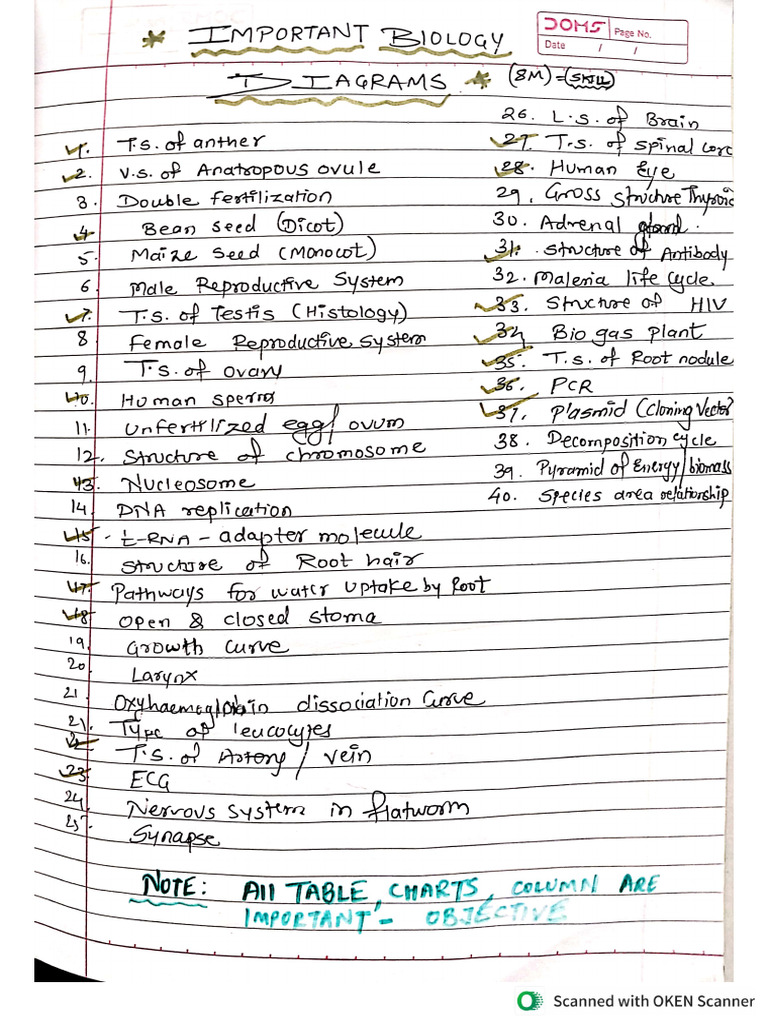 * IMPORTANT BIOLOGY
DOMS Page No.
Date / /
DIAGRAMS * (8M) = (SKILL)
1. T.S. of anther
2. V.S. of Anatropous ovule
3. Double fertilization
4. Bean seed (Dicot)
5. Maize seed (Monocot)
6. Male Reproductive System
7. T.S. of Testis (Histology)
8 Female Reproductive System
9. T.S. of ovary
10. Human sperm
11. Unfertilized egg/ovum
12. Structure of chromosome
13. Nucleosome
14. DNA replication
15 - t-RNA - adapter molecule
16. Structure of Root hair
17. Pathways for water uptake by Root
18 open & closed stoma
19. Growth Curve
20 Larynx
21 Oxyhaemoglobin dissociation Curve
21. Type of leucocytes
22 T.S. of Artery / vein
23 ECG
24. Nervous system in flatworm
25. Synapse
26. L.S. of Brain
27. T.S. of spinal corc
28. Human Eye
29. Gross Structure Thyroid
30. Adrenal gland.
31. Structure of Antibody
32. Maleria life cycle.
33. Structure of HIV
34 Bio gas plant
35. T.S. of Root nodule
36. PCR
37. Plasmid (Cloning Vector
38. Decomposition cycle
39. Pyramid of Energy/biomass
40. Species area relationship
NOTE: All TABLE, CHARTS, COLUMN ARE
IMPORTANT - OBJECTIVE
Scanned with OKEN Scanner